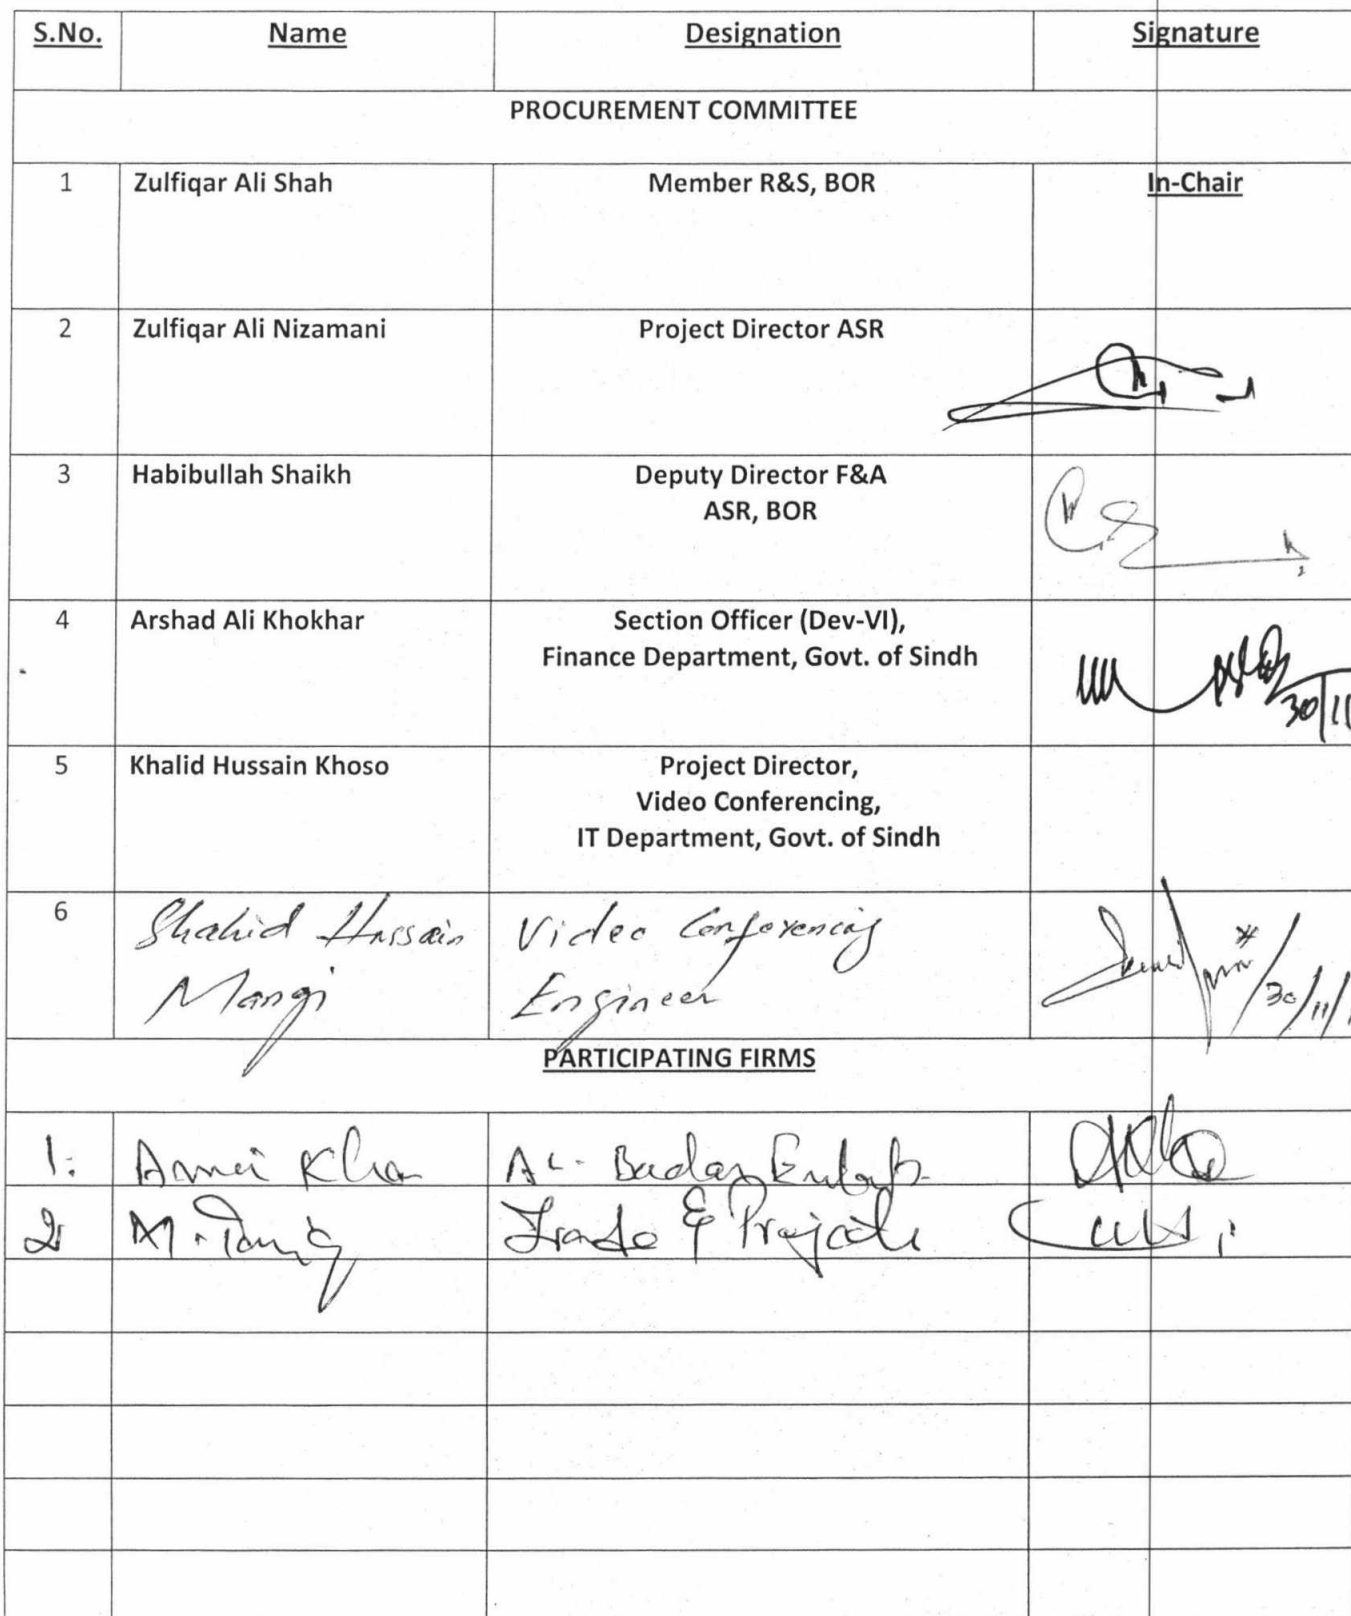 S.No. Name Designation Signature
PROCUREMENT COMMITTEE
1 Zulfiqar Ali Shah Member R&S, BOR In-Chair
2 Zulfiqar Ali Nizamani Project Director ASR
3 Habibullah Shaikh Deputy Director F&A
ASR, BOR
4 Arshad Ali Khokhar Section Officer (Dev-VI),
Finance Department, Govt. of Sindh
30/11
5 Khalid Hussain Khoso Project Director,
Video Conferencing,
IT Department, Govt. of Sindh
6 Shahid Hussain Video Conferencing
Mangi Engineer 30/11/
PARTICIPATING FIRMS
1. Khan Al- Badar
2 M. Tariq Trade & Projects